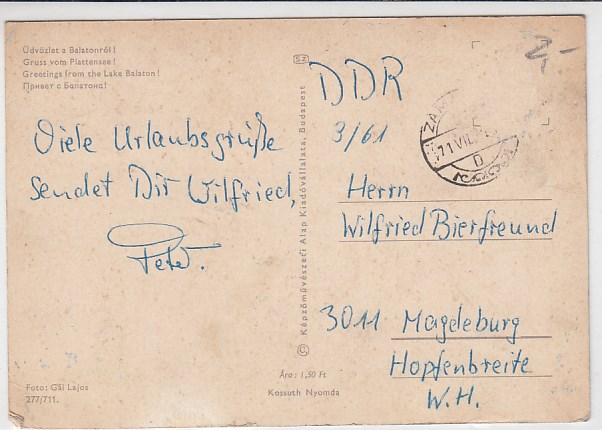 Üdvözlet a Balatonról!
Gruss vom Plattensee!
Greetings from the Lake Balaton!
Привет с Балатона!
Viele Urlaubsgrüße
sendet Dir Wilfried,
Peter.
Foto: Gál Lajos
277/711.
SZ
© Képzőművészeti Alap Kiadóvállalata, Budapest
Ára: 1,50 Ft
Kossuth Nyomda
2,-
DDR
3/61
71 VII.
D
Herrn
Wilfried Bierfreund
3011 Magdeburg
Hopfenbreite
W.H.